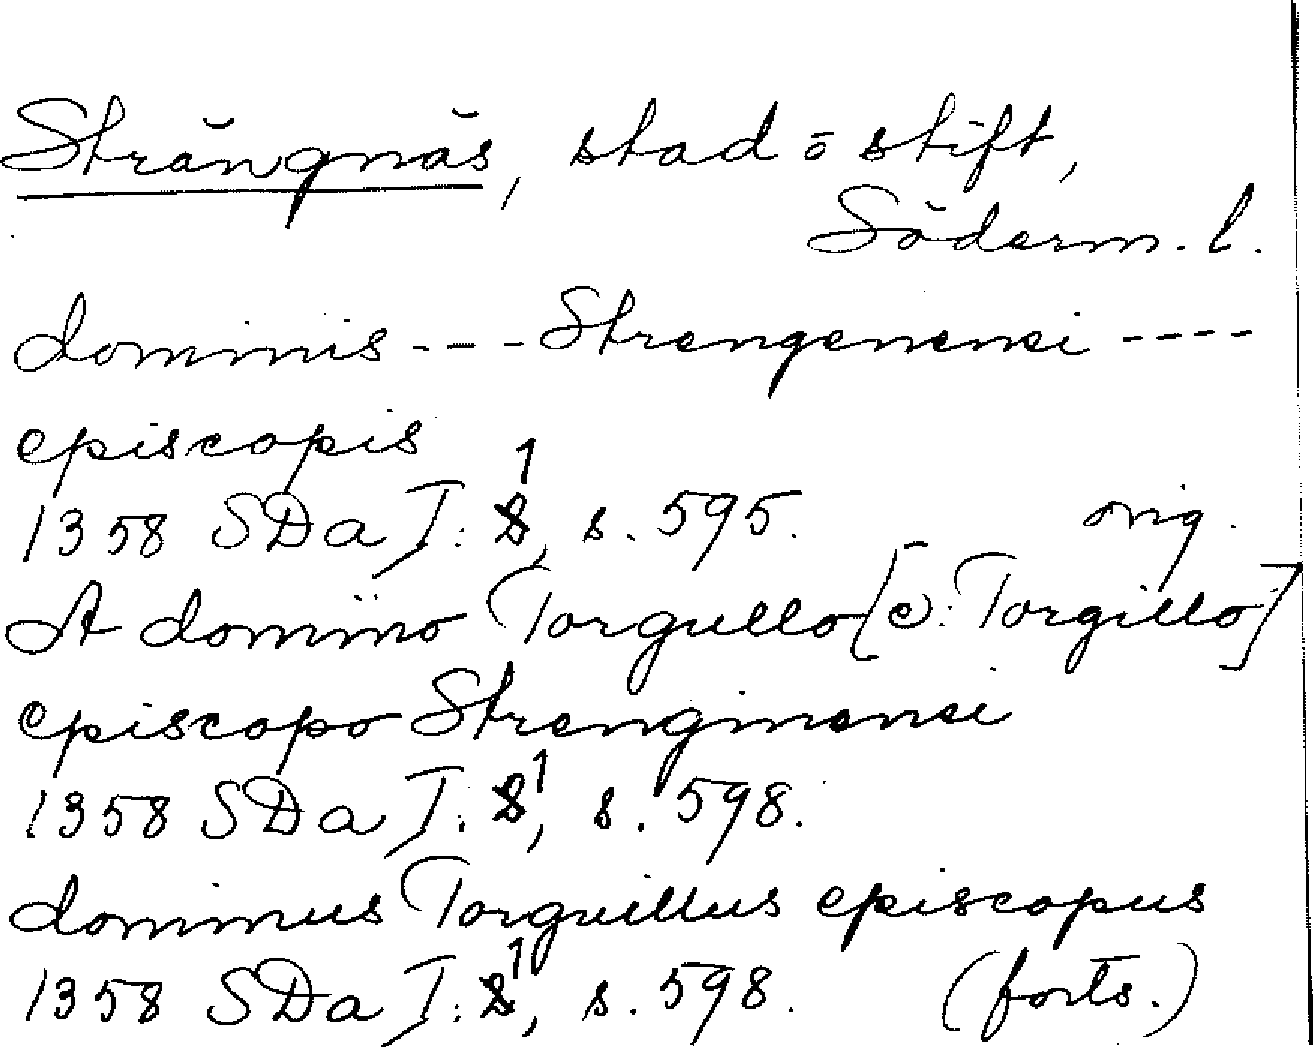 Strängnäs, stad o stift,
Söderm. l.
dominis - - - - Strengenensi - - - -
episcopis
1358 SDa I: 1, s. 595. orig.
A domino Torgullo [ɔ: Torgillo]
episcopo Strenginensi
1358 SDa I: 1, s. 598.
dominus Torguillus episcopus
1358 SDa I: 1, s. 598. (forts.)